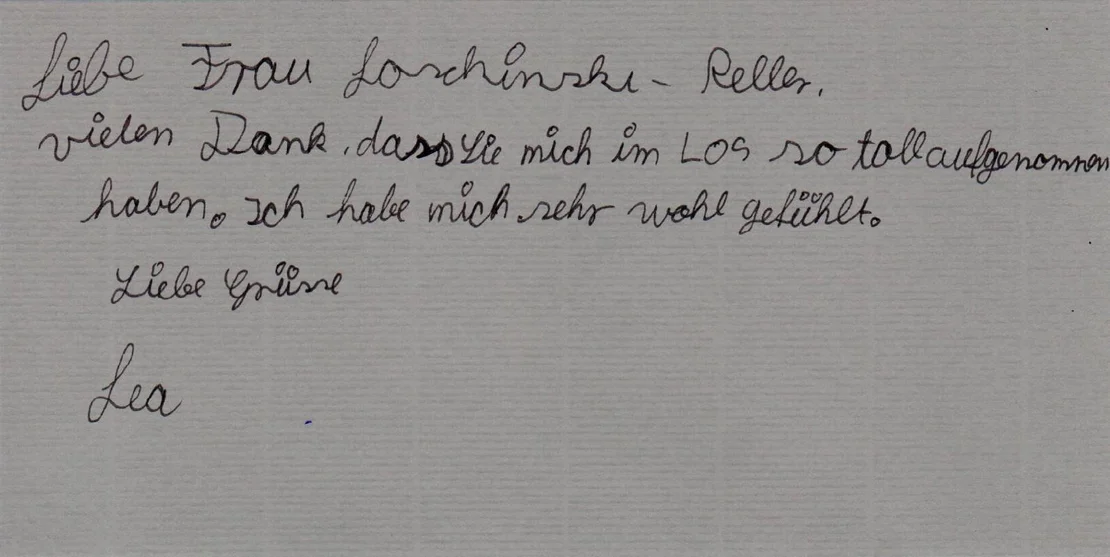 Liebe Frau Loschinski - Reller,
vielen Dank, dass Sie mich im LOS so toll aufgenommen
haben. Ich habe mich sehr wohl gefühlt.
Liebe Grüsse
Lea